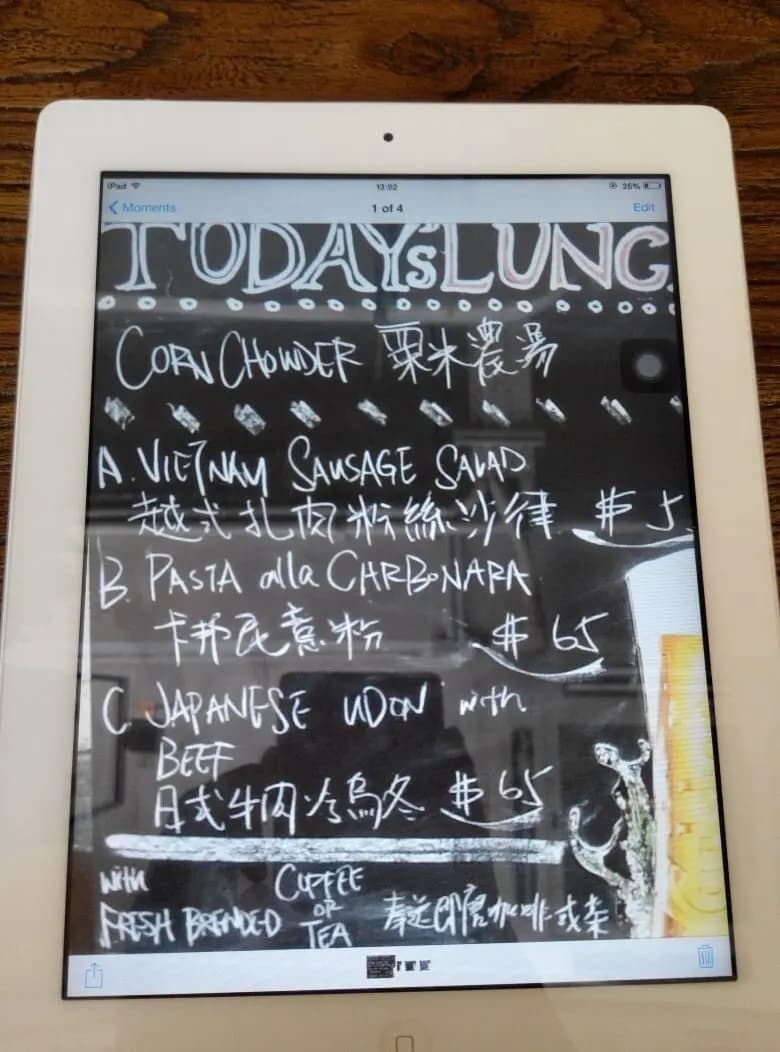 iPad 13:02 25%
Moments 1 of 4 Edit
TODAY'S LUNC
CORN CHOWDER 粟米濃湯
A. VIETNAM SAUSAGE SALAD
越式扎肉粉絲沙律 $ 5
B. PASTA alla CARBONARA
卡邦尼意粉 $ 65
C. JAPANESE UDON with
BEEF
日式牛肉冷烏冬 $ 65
with COFFEE
FRESH BRENDED OR 奉送即磨咖啡或茶
TEA